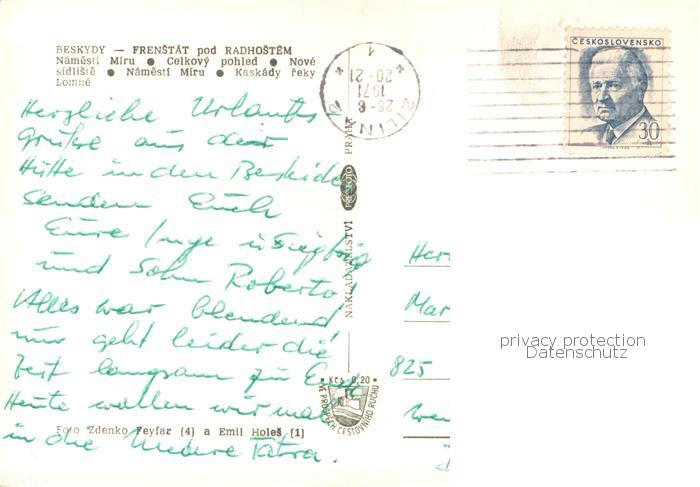 BESKYDY — FRENŠTÁT pod RADHOŠTĚM
Náměstí Míru ● Celkový pohled ● Nové
sídliště ● Náměstí Míru ● Kaskády řeky
Lomné
ŽILINA 1
28-6
1971
20-21
ČESKOSLOVENSKO
30
h
Herzliche Urlaubs
Grüße aus der
Hütte in den Beskiden
senden Euch
Eure Inge u. Siegfried
und Sohn Roberto!
Alles war blendend
nur geht leider die
Zeit langsam zu
Heute wollen wir mal
in die Niedere Tatra.
NAKLADATELSTVÍ PRAHA
Kčs 0,20
VE PROSPĚCH CESTOVNÍHO RUCHU
Foto Zdenko Feyfar (4) a Emil Holeš (1)
Her
Mar
825
privacy protection
Datenschutz